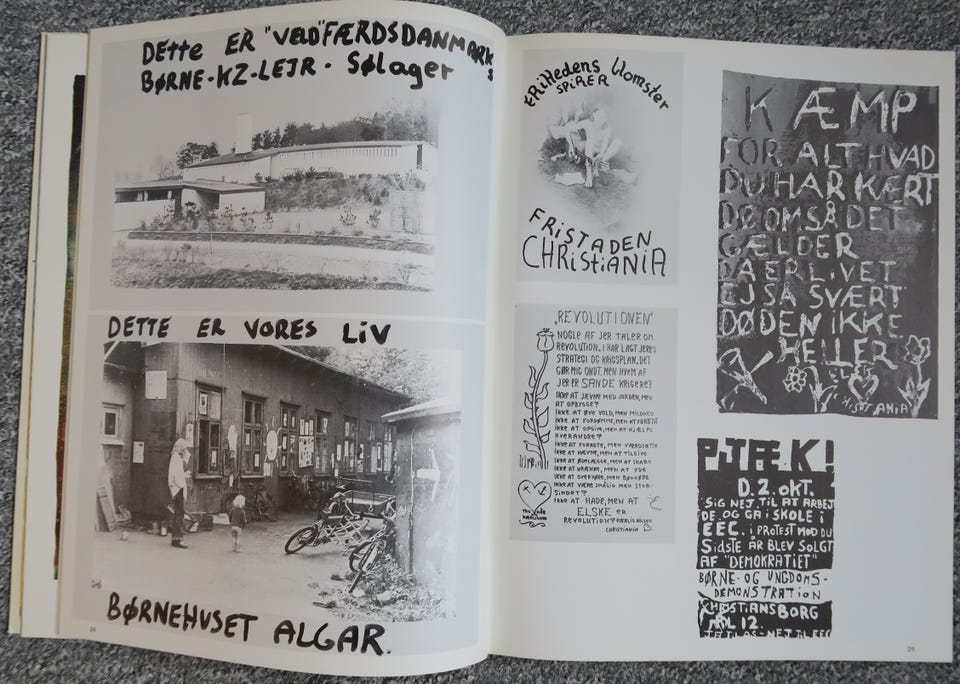 DETTE ER "VELD"FÆRDSDANMARKS
BØRNE-KZ-LEJR - Sølager
DETTE ER VORES LIV
BØRNEHUSET ALGAR.
28
FRiHedens blomster
SPiRER
FRiSTADEN
CHRiSTiANiA
„REVOLUTIONEN"
NOGLE AF JER TALER OM
REVOLUTION. I HAR LAGT JERES
STRATEGI OG KRIGSPLAN. DET
GØR MIG ONDT. MEN HVEM AF
JER ER SANDE KRIGERE?
IKKE AT JÆVNE MED JORDEN, MEN
AT OPBYGGE?
IKKE AT ØVE VOLD, MEN MILDHED
IKKE AT FORDØMME, MEN AT FORSTÅ
IKKE AT OPGIVE, MEN AT HJÆLPE
HVERANDRE?
IKKE AT FORAGTE, MEN VÆRDSÆTTE
IKKE AT HÆVNE, MEN AT TILGIVE
IKKE AT ØDELÆGGE, MEN AT SKABE
IKKE AT KRÆNKE, MEN AT
IKKE AT MEN
IKKE AT VÆRE SMÅLIG MEN STOR-
SINDET?
IKKE AT HADE, MEN AT
ELSKE ER
REVOLUTION?
CHRISTIANIA
KÆMP
FOR ALT HVAD
DU HAR KÆRT
DØ OM SÅ DET
GÆLDER
DA ER LIVET
EJ SÅ SVÆRT
DØDEN IKKE
HELLER
PJÆK!
D. 2. OKT.
SIG NEJ TIL AT ARBEJ
DE OG GÅ i SKOLE i
EEC. i PROTEST MOD DU
SIDSTE ÅR BLEV SOLGT
AF "DEMOKRATIET"
BØRNE- OG UNGDOMS-
DEMONSTRATION
KHRISTIANSBORG
KL 12.